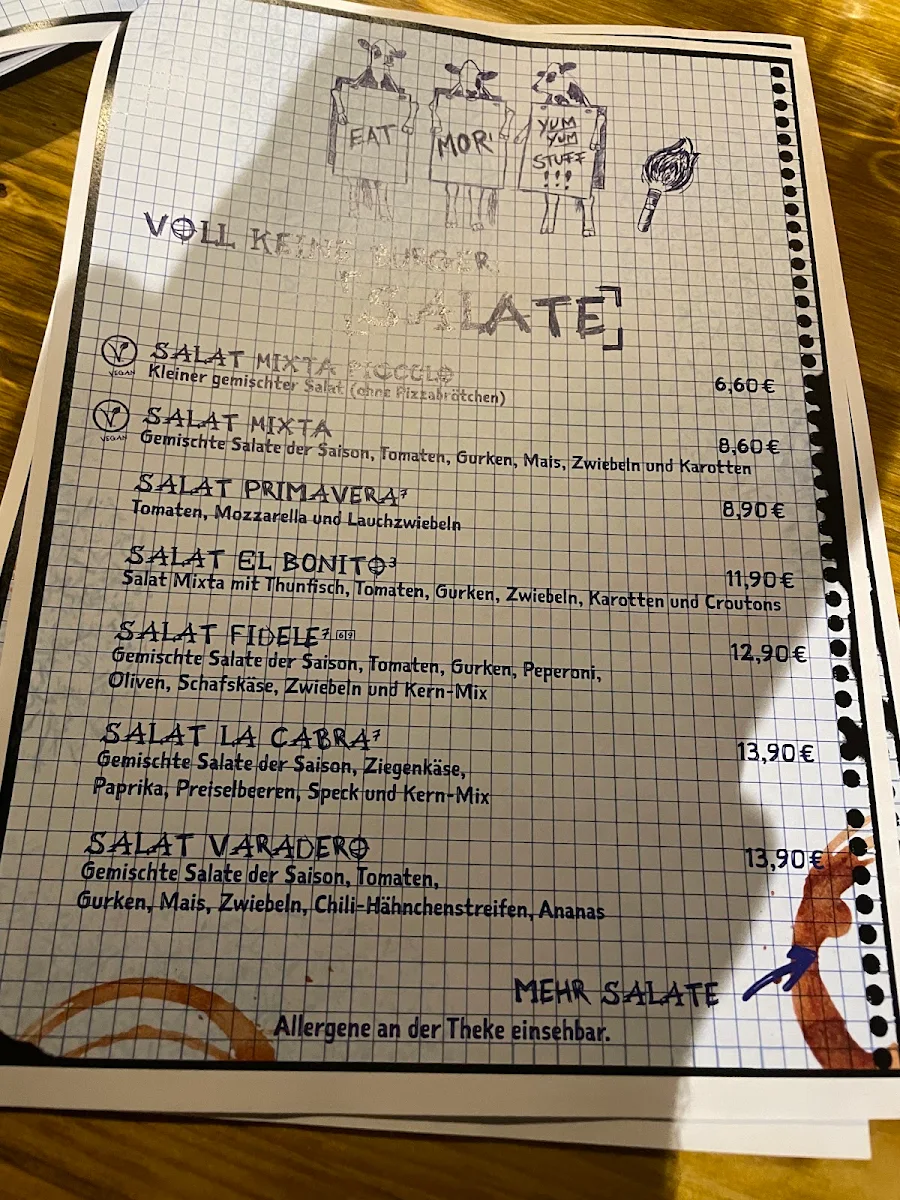 EAT
MOR'
YUM
YUM
STUFF
!!!
VOLL KEINE BURGER
SALATE
VEGAN
SALAT MIXTA PICCOLO 6,60 €
Kleiner gemischter Salat (ohne Pizzabrötchen)
VEGAN
SALAT MIXTA 8,60 €
Gemischte Salate der Saison, Tomaten, Gurken, Mais, Zwiebeln und Karotten
SALAT PRIMAVERA⁷ 8,90 €
Tomaten, Mozzarella und Lauchzwiebeln
SALAT EL BONITO³ 11,90 €
Salat Mixta mit Thunfisch, Tomaten, Gurken, Zwiebeln, Karotten und Croutons
SALAT FIDELE⁷ 6 9 12,90 €
Gemischte Salate der Saison, Tomaten, Gurken, Peperoni,
Oliven, Schafskäse, Zwiebeln und Kern-Mix
SALAT LA CABRA⁷ 13,90 €
Gemischte Salate der Saison, Ziegenkäse,
Paprika, Preiselbeeren, Speck und Kern-Mix
SALAT VARADERO 13,90 €
Gemischte Salate der Saison, Tomaten,
Gurken, Mais, Zwiebeln, Chili-Hähnchenstreifen, Ananas
MEHR SALATE
Allergene an der Theke einsehbar.